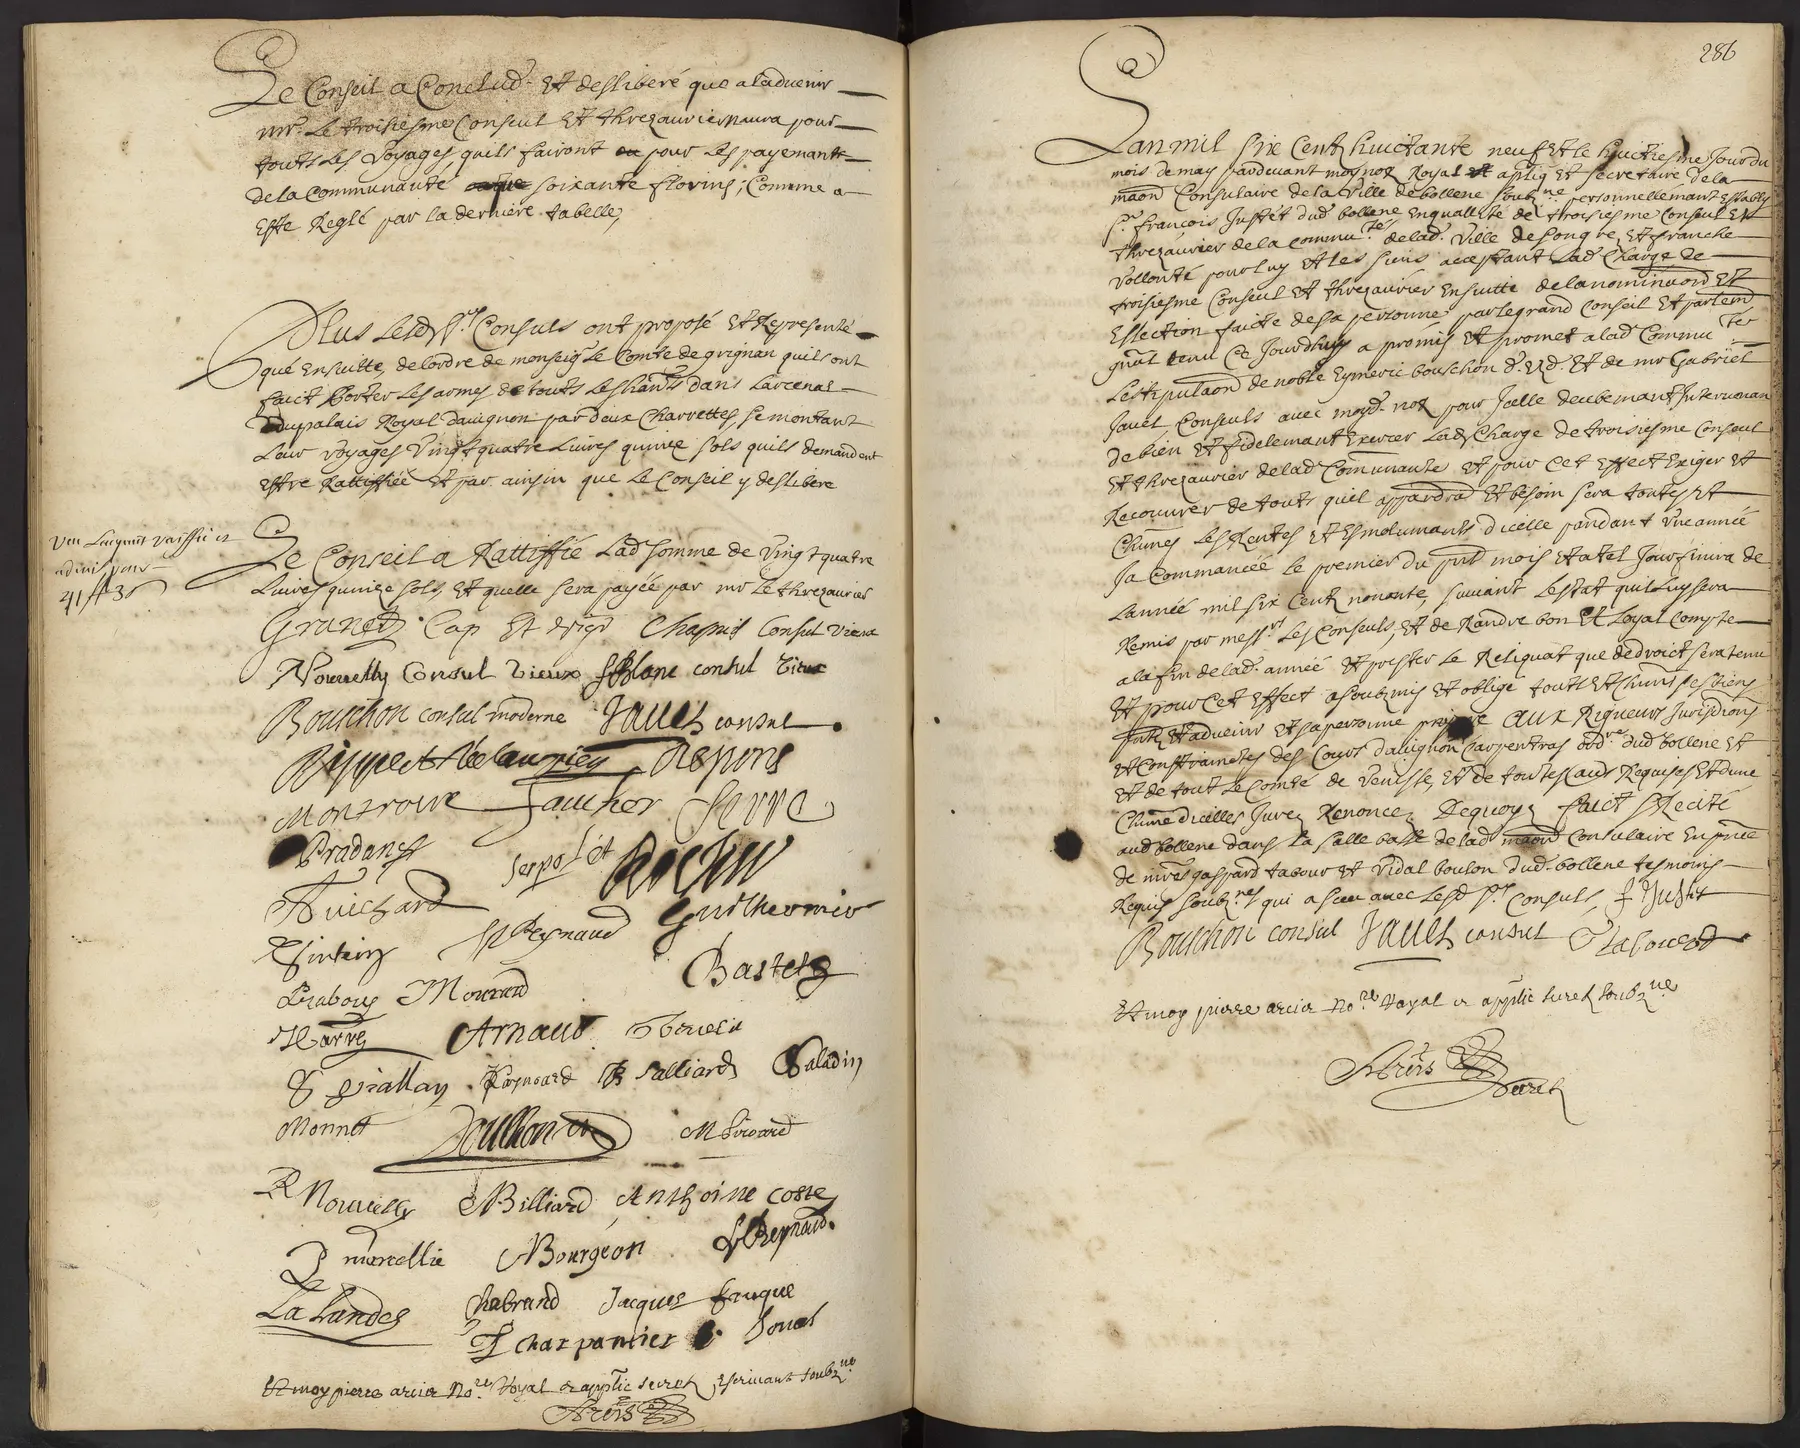 Le Conseil a Conclud. Et desliberé que a ladvenir
mr. Le troisiesme Conseul Et threzaurier naura pour
touts Les Voyages quils fairont pour Les payemants
de la Communauté soixante florins, Comme a
Este Reglé par la derniere tabelle,
Plus Lesd. srs. Consuls ont proposé Et Representé
que Ensuitte, de lordre de monseigr. Le Comte de grignan quils ont
faict Porter Les armes de touts Les hants dans Larcenat
du palais Royal davignon par deux Charrettes, se montant
Leur Voyages Vingt quatre Luires quinze sols quils demandent
Estre Rattiffiée Et par ainsin que Le Conseil y deslibere
Le Conseil a Rattiffié Lad. somme de Vingt quatre
Luires quinze sols, Et quelle sera payée par mr Le threzaurier
41 ff 3s
Grunet Cap Et Consul Vieux
Nourelly Consul Vieux Blanc consul Vieux
Bouchon consul moderne Jauet consul
Rippert Respons
Montroux faucher Serre
Pradanes serpolét Rochier
Guichard St Reynaud Guilhermier
Bastet
Mourard
Arnaud
Viallan Raynoard Salliard Saladin
Monnet Bouchon
R Nourelly Billiard Anthoine coste
P marcellie Bourgeon Reynaud.
La Landes Chabrand Jacques fauque
charpantier Jouet
Et moy pierre arcis Nore. Royal et applic secret. Escrivant soubzne.
286
Lan mil six Cent huictante neuf Et le huictiesme Jour du
mois de may pardevant moy nore Royal Et aplicq Et secretaire de la
maon Consulaire de la Ville de bollene soubne. personnellemant Estably
sr. françois Justét dud. bollene En quallité de troisiesme Conseul Et
threzaurier de la commuté. de lad. Ville de son gre, Et franche
Vollonté pour luy Et les siens acceptant Lad. Charge de
troisiesme Conseul Et threzaurier Ensuitte de la nominaon Et
Eslection faicte de sa personne par le grand Conseil Et parlem
gnal tenu Ce Jourdhuy a promis Et promet a lad. Commu.
Lestipulaon de noble Eymeric bouschon Et de mr Gabriel
Jauet Consuls avec moyd. nore pour Jcelle deubemant Jntervenan
de bien Et fidelemant Exercer Lad. Charge de troisiesme Conseul
Et threzaurier de lad. Communauté Et pour Cet Effect Exiger Et
Recouvrer de touts quil appardra Et besoin sera toutes Et
Chunes Les Rentes Et Esmolumants dicelle pandant Vne année
Ja Commancée Le premier du pnt mois Et a tel Jour finira de
Lannée mil six Cent nonante, suivant Lestat quil luy sera
Remis par messrs. Les Conseuls, Et de Randre bon Et Loyal Compte
a la fin de lad. année Et prester Le Reliquat que de droict sera tenu
Et pour Cet Effect a soubzmis Et obligé touts Et Chuns ses biens
pnts Et advenir Et sa personne propre aux Rigueurs Jurisdions
Et Constraintes des Cours davignon Carpentras ordre. dud. bollene Et
Et de tout Le Comté de Venisse, Et de toutes aus Requises Et dune
Chune dicelles Jure, Renonce, De quoy, faict Et Recité
aud bollene dans La salle basse de lad. maon Consulaire En pnce
de mres gaspard tabour Et Vidal boulon dud. bollene tesmoins
Requis soubznes. qui a sceu avec Lesd srs. Consuls, f Justét
Bouchon consul Jauet consul
Et moy pierre arcis Nore. Royal et applic secret. soubzne.